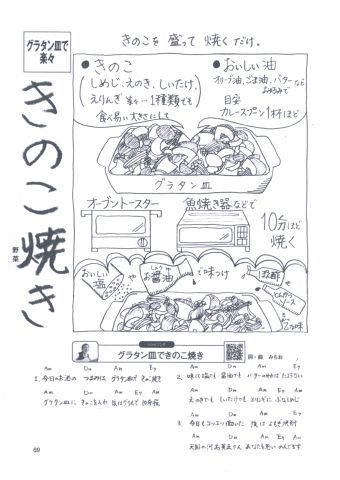 グラタン皿で
楽々
きのこ焼き
野菜
きのこを 盛って 焼くだけ。
●きのこ
(しめじ、えのき、しいたけ、
えりんぎ 等々…1種類でも
食べ易い大きさにして
●おいしい油
オリーブ油、ごま油、バターなど
お好みで
目安
カレースプーン1杯ほど
グラタン皿
オーブントースター
魚焼き器などで
10分ほど
焼く
おいしい
塩
や
お醤油
しょうゆ
で味つけ
ポン酢
とんかつ
ソース
グラタン皿できのこ焼き
詞・曲 みちお
Am Dm Am E7
1. 今日のお酒の つまみは グラタン皿で きのこ焼き
Am Dm Am E7 Am
グラタン皿に きのこを入れ
Am Dm Am E7
2. 味は塩でも 醤油でも バター
Am Dm Am E7 Am
えのきでも しいたけでも エリンギに ぶなしめじ
Am Dm Am E7
3. 今日もコツコツ働いた
Am Dm Am E7 Am
69